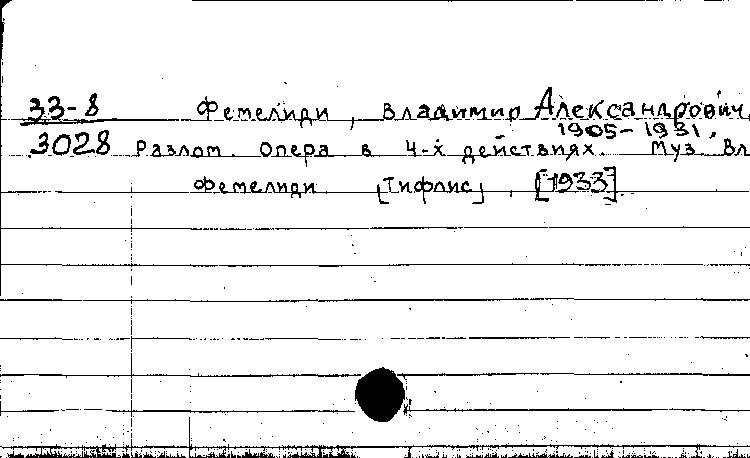 33-8 Фемелиди, Владимир Александрович,
1905-1931,
3028 Разлом. Опера в 4-х действиях. Муз. Вл
Фемелиди [Тифлис], [1933].